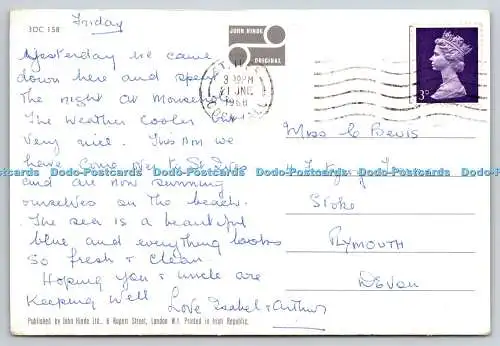 3DC 158
Friday
JOHN HINDE
ORIGINAL
Yesterday we came
down here and spent
the night at Mousehole
The weather cooler but
very nice. This am we
have come over to St Ives
and are now sunning
ourselves on the beach.
The sea is a beautiful
blue and everything looks
so fresh & clean.
Hoping you & uncle are
keeping well
Love Isabel & Arthur
9 30 PM
21 JNE
1968
3D
Miss C Bevis
Stoke
PLYMOUTH
DEVON
Dodo-Postcards Dodo-Postcards Dodo-Postcards Dodo-Postcards
Published by John Hinde Ltd., 6 Rupert Street, London W.1. Printed in Irish Republic.